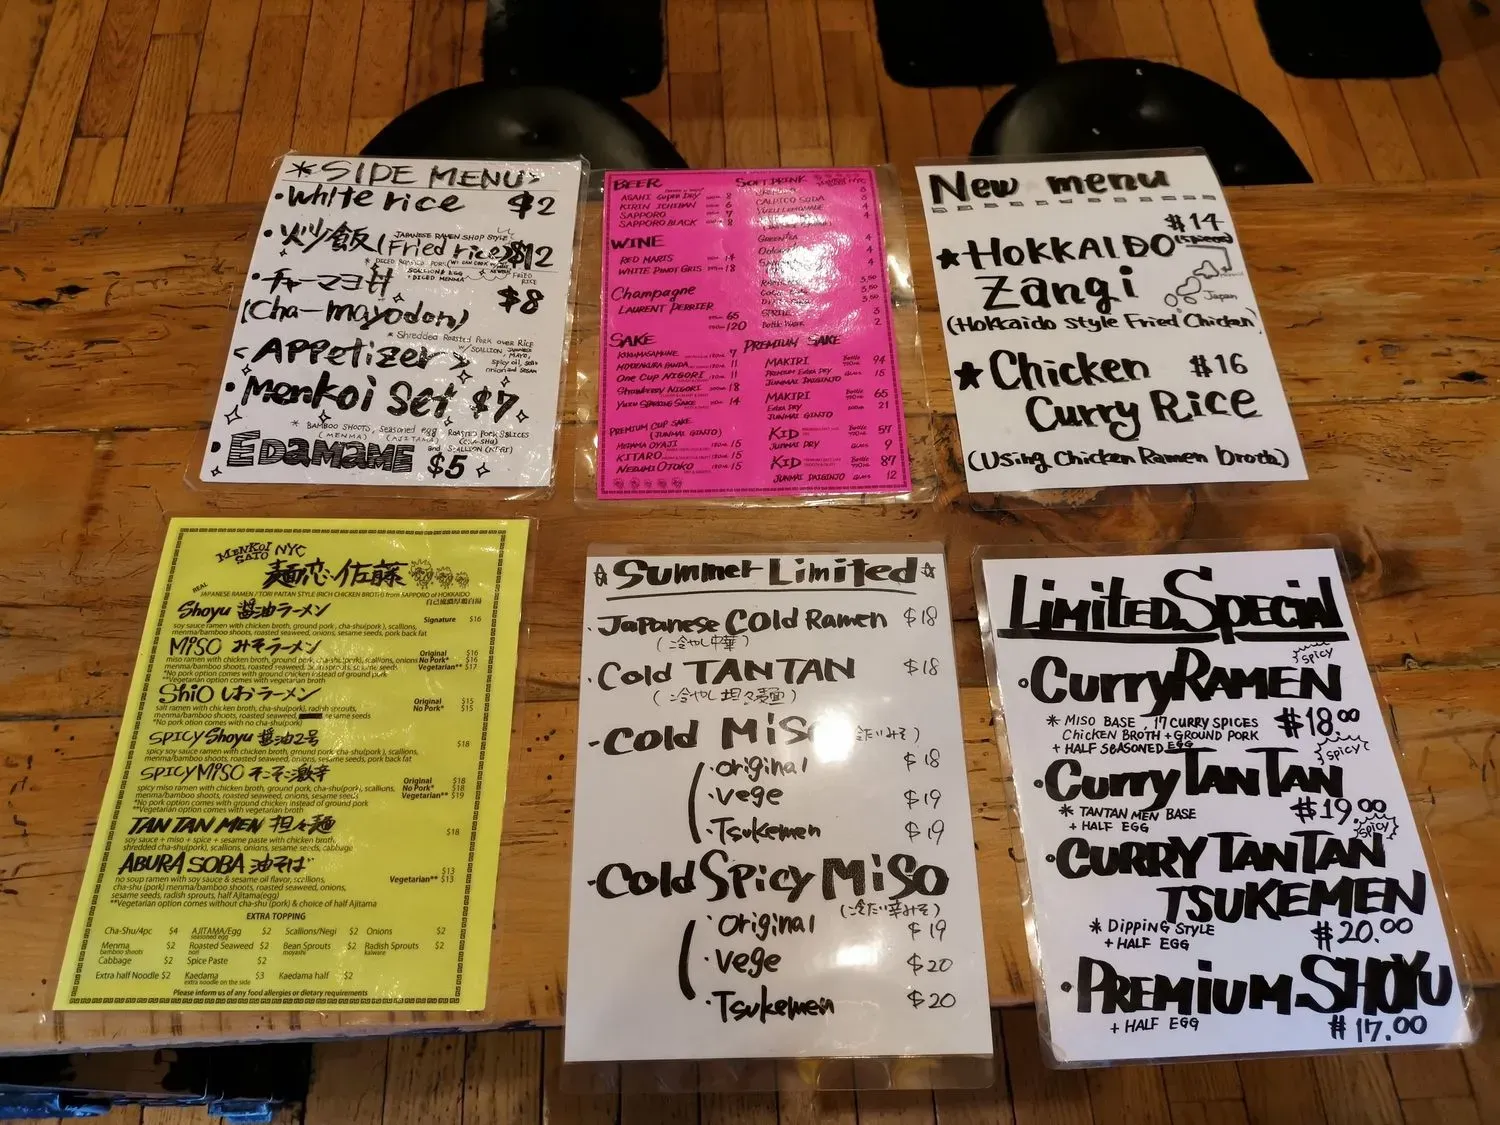 *SIDE MENU*
• White rice $2
• 炒飯 (Fried rice) $12
JAPANESE RAMEN SHOP STYLE
SCALLION & EGG
+ DICED MENMA
• チャーマヨ丼 $8
(Cha-mayodon)
* Shredded Roasted Pork over Rice
w/ SCALLION, JAPANESE MAYO,
<APPetizer>
• Menkoi Set $7
* BAMBOO SHOOTS, SEASONED EGG, ROASTED PORK SLICES
(MENMA) (AJITAMA) (CHA-SHU)
and SCALLION (NEGI)
• EDAMAME $5
BEER
ASAHI SUPER DRY 8
KIRIN ICHIBAN 6
SAPPORO 7
SAPPORO BLACK 8
WINE
RED MARIS 14
WHITE PINOT GRIS 18
Champagne
LAURENT PERRIER
65
120
SAKE
KIKUMASAMUNE 180ml 7
ONE CUP NIGORI 11
STRAWBERRY NIGORI 18
YUZU SPARKLING SAKE 14
PREMIUM CUP SAKE
(JUNMAI GINJO)
MEGAMA OYAJI 180ml 15
KITARO 180ml 15
NEZUMI OTOKO 180ml 15
SOFT DRINK
CALPICO SODA 3
GREEN TEA 4
SPRITE 3
Bottle Water 2
PREMIUM SAKE
MAKIRI Bottle 750ml 94
PREMIUM EXTRA DRY GLASS 15
JUNMAI DAIGINJO
MAKIRI Bottle 65
EXTRA DRY 21
JUNMAI GINJO
KID Bottle 750ml 57
JUNMAI DRY GLASS 9
KID Bottle 750ml 87
JUNMAI DAIGINJO GLASS 12
New menu
$14
★HOKKAIDO
Zangi
Japan
(Hokkaido style Fried Chicken)
★Chicken $16
Curry Rice
(Using Chicken Ramen broth)
MENKOI SATO NYC
麺恋佐藤
REAL
JAPANESE RAMEN / TORI PAITAN STYLE (RICH CHICKEN BROTH) from SAPPORO of HOKKAIDO
自己流濃厚鶏白湯
Shoyu 醤油ラーメン
Signature $16
soy sauce ramen with chicken broth, ground pork, cha-shu(pork), scallions,
menma/bamboo shoots, roasted seaweed, onions, sesame seeds, pork back fat
MISO みそラーメン
Original $16
miso ramen with chicken broth, ground pork, cha-shu(pork), scallions, onions No Pork* $16
menma/bamboo shoots, roasted seaweed, beansprouts, sesame seeds Vegetarian** $17
*No pork option comes with ground chicken instead of ground pork
**Vegetarian option comes with vegetarian broth
Shio しおラーメン
Original $15
salt ramen with chicken broth, cha-shu(pork), radish sprouts, No Pork* $15
menma/bamboo shoots, roasted seaweed, sesame seeds
*No pork option comes with no cha-shu(pork)
SPICY Shoyu 醤油2号
$18
spicy soy sauce ramen with chicken broth, ground pork, cha-shu(pork), scallions,
menma/bamboo shoots, roasted seaweed, onions, sesame seeds, pork back fat
SPICY MISO そこそこ激辛
Original $18
spicy miso ramen with chicken broth, ground pork, cha-shu(pork), scallions, No Pork* $18
menma/bamboo shoots, roasted seaweed, onions, sesame seeds Vegetarian** $19
*No pork option comes with ground chicken instead of ground pork
**Vegetarian option comes with vegetarian broth
TAN TAN MEN 担々麺
$18
soy sauce + miso + spice + sesame paste with chicken broth,
shredded cha-shu(pork), scallions, onions, sesame seeds, cabbage
ABURA SOBA 油そば
$13
no soup ramen with soy sauce & sesame oil flavor, scallions, Vegetarian** $13
cha-shu (pork) menma/bamboo shoots, roasted seaweed, onions,
sesame seeds, radish sprouts, half Ajitama(egg)
**Vegetarian option comes without cha-shu (pork) & choice of half Ajitama
EXTRA TOPPING
Cha-Shu/4pc $4 AJITAMA/Egg $2 Scallions/Negi $2 Onions $2
seasoned egg
Menma $2 Roasted Seaweed $2 Bean Sprouts $2 Radish Sprouts $2
bamboo shoots nori moyashi kaiware
Cabbage $2 Spice Paste $2
Extra half Noodle $2 Kaedama $3 Kaedama half $2
extra noodle on the side
Please inform us of any food allergies or dietary requirements
☆Summer Limited☆
• Japanese Cold Ramen $18
(冷やし中華)
• Cold TANTAN $18
(冷やし坦々麺)
- Cold Miso (冷たいみそ)
• Original $18
• vege $19
• Tsukemen $19
- Cold Spicy Miso
(冷たい辛みそ)
• Original $19
• vege $20
• Tsukemen $20
LIMITED SPECIAL
spicy
• Curry RAMEN
* MISO BASE, 17 CURRY SPICES $18.00
CHICKEN BROTH + GROUND PORK
+ HALF SEASONED EGG
spicy
• Curry TAN TAN
* TANTAN MEN BASE $19.00
+ HALF EGG
spicy
• CURRY TANTAN
TSUKEMEN
* DIPPING STYLE $20.00
+ HALF EGG
• PREMIUM SHOYU
+ HALF EGG $17.00